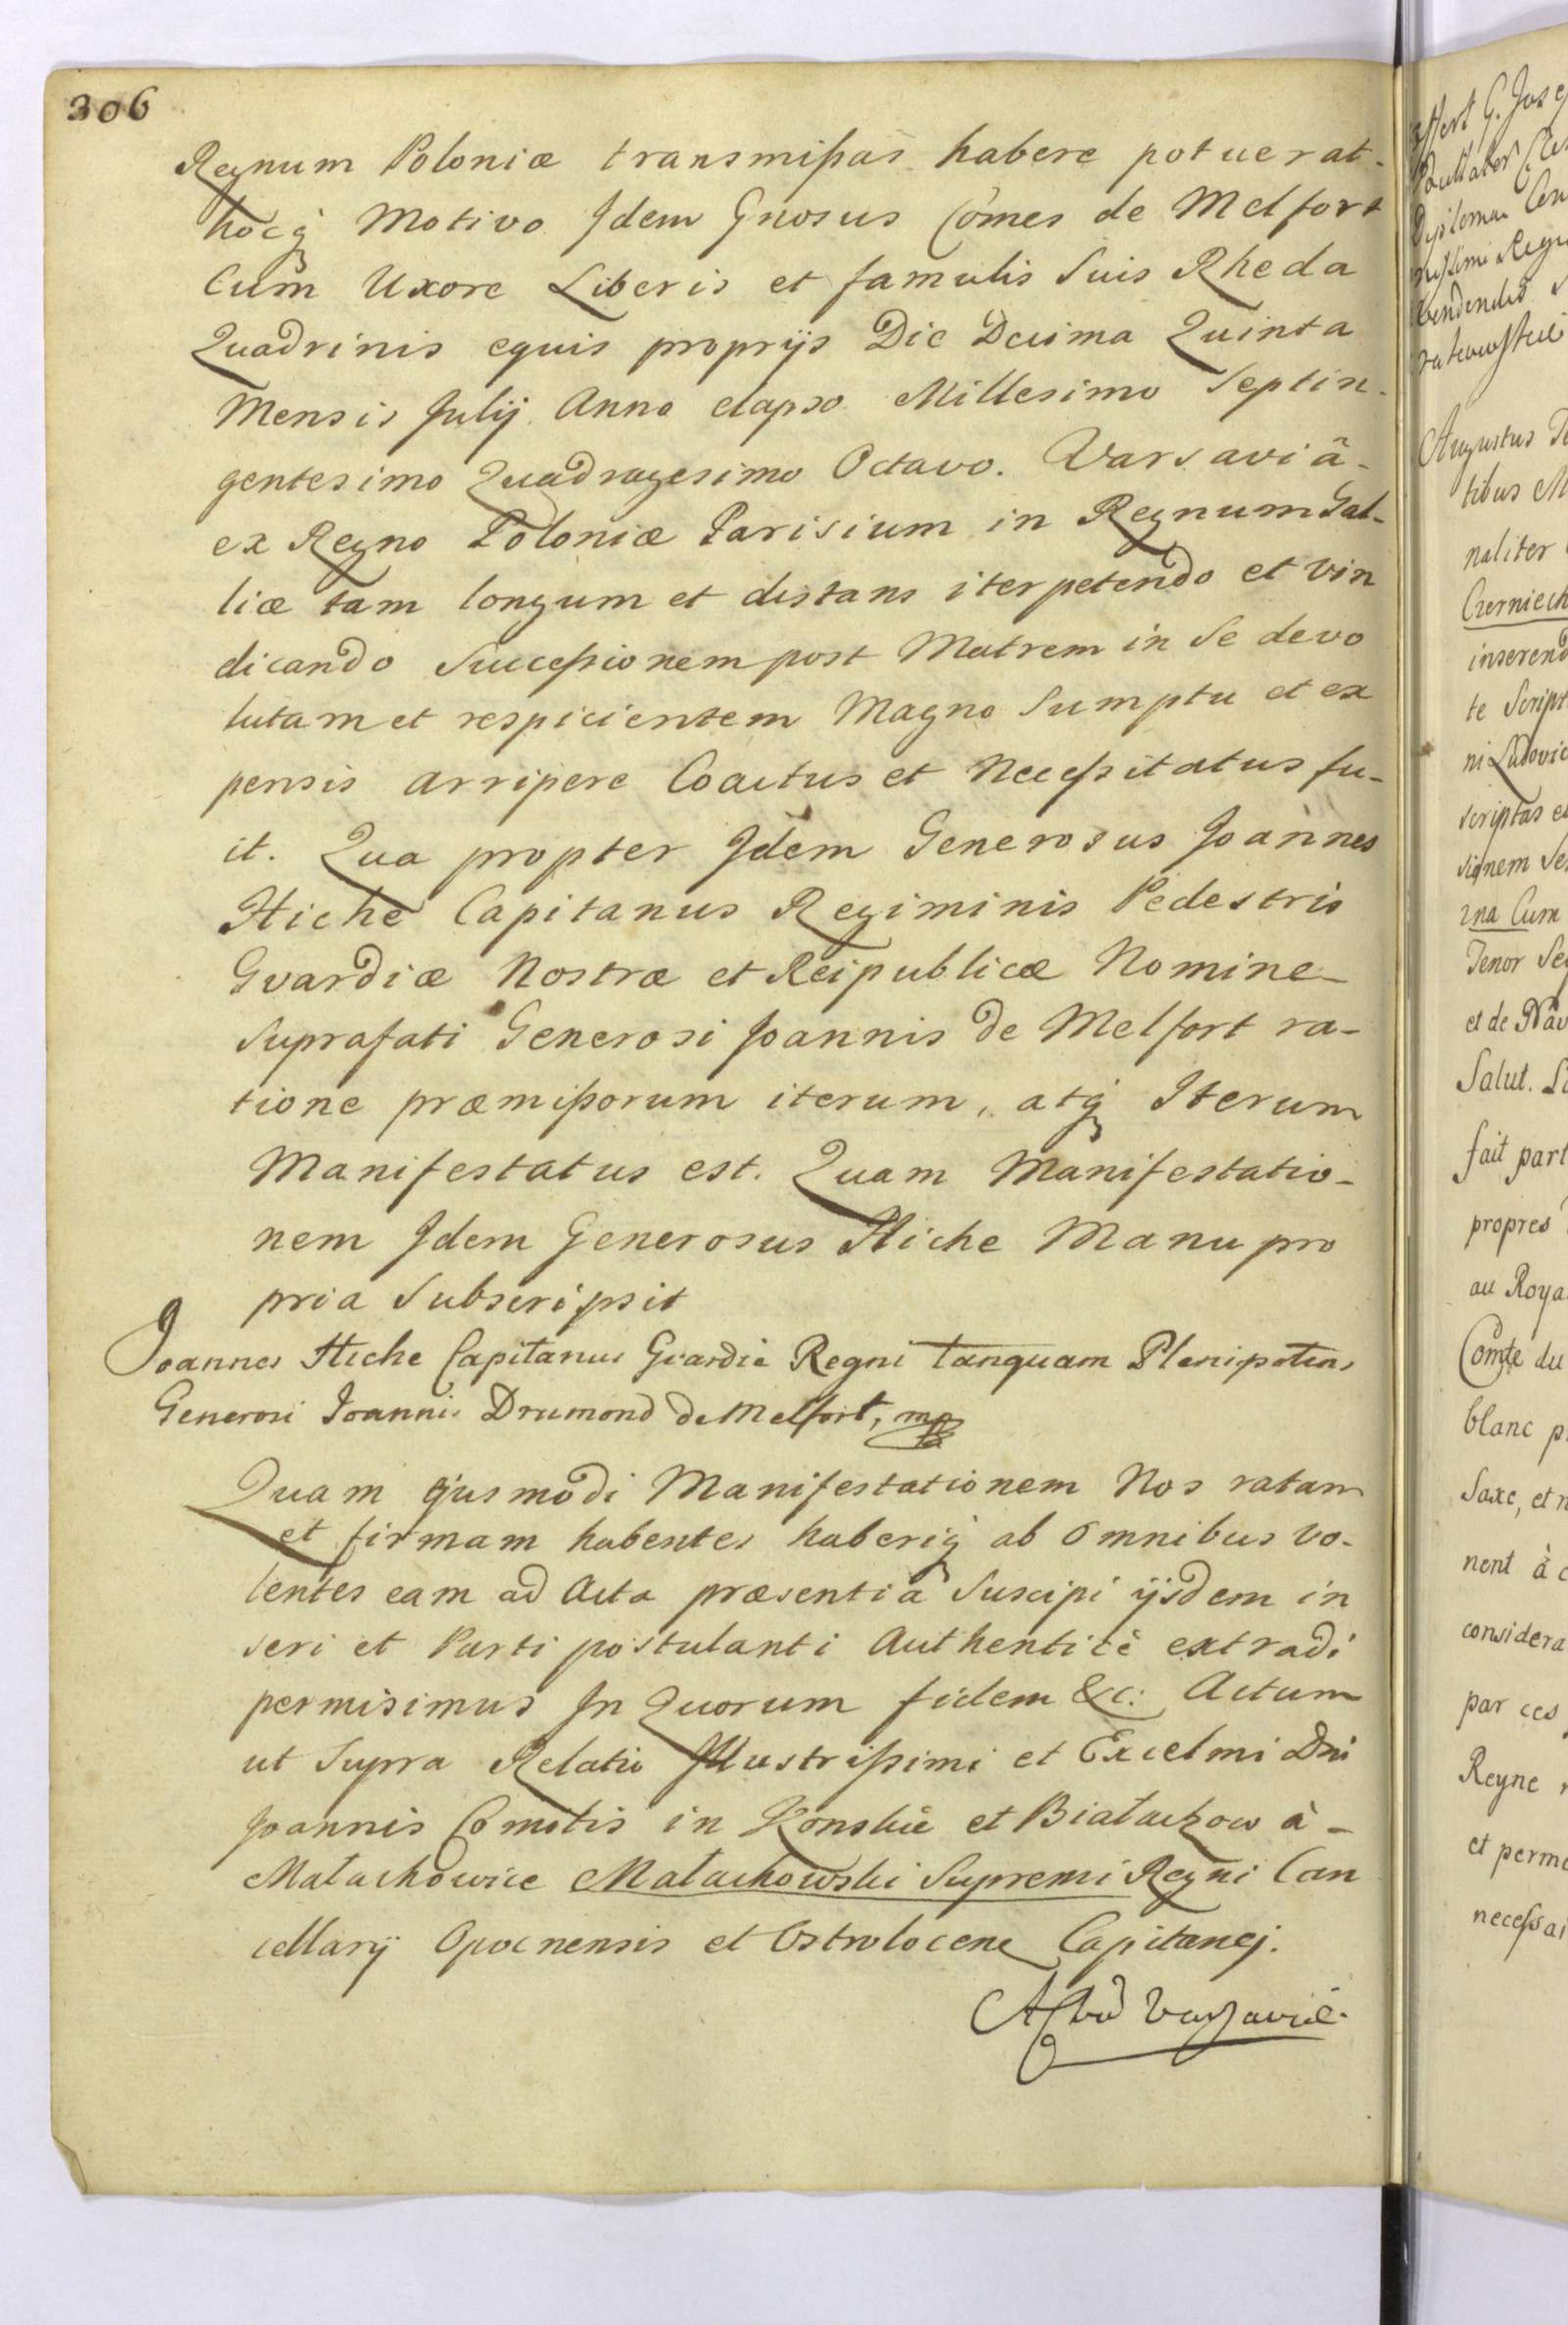 306
Regnum Poloniæ transmißas habere potuerat-
hocq́ Motivo Jdem Gnosus Comes de Melfort
Cum Uxore Liberis et famulis Suis Rheda
Quadrinis equis proprijs Die Decima Quinta
Mensis Julij Anno elapso Millesimo Septin-
gentesimo Quadragesimo Octavo. Varsaviâ-
ex Regno Poloniæ Parisium in Regnum Gal-
liæ tam longum et distans iter petendo et vin
dicando Succeßionem post Matrem in Se devo
lutam et respicientem Magno Sumptu et ex
pensis arripere Coactus et Neceßitatus fu-
it. Qua propter Jdem Generosus Joannes
Hiche Capitanus Regiminis Pedestris
Gvardiæ Nostræ et Reipublicæ Nomine-
Suprafati Generosi Joannis de Melfort ra-
tione præmißorum iterum, atq́ Iterum
Manifestatus est. Quam Manifestatio-
nem Jdem Generosus Hiche Manu pro
pria Subscripsit
Joannes Hiche Capitanus Gvardiæ Regni tanquam Plenipotens
Generosi Joannis Drumond de Melfort, mp
Quam ejusmodi Manifestationem Nos ratam
et firmam habentes haberiq́ ab omnibus vo-
lentes eam ad Acta præsentia Suscipi ijsdem in
seri et Parti postulanti Authenticè extradi
permisimus Jn Quorum fidem &c: Actum
ut Supra Relatio Jllustrißimi et Excelmi Dni
Joannis Comitis in Konskie et Białaczow à-
Małachowice Małachowski Supremi Regni Can
cellarij Opocnensis et Ostrolocen Capitanej.
Varsaviæ.
Augustus
tibus
naliter
Czerniech
inserend
te Script
ni Ludovic
scriptas
Cum
Tenor
et de Nav
Salut.
fait part
propres
au Roya
Comte du
blanc
Saxe, et
nent à
considera
par ces
Reyne
et perme
neceßai